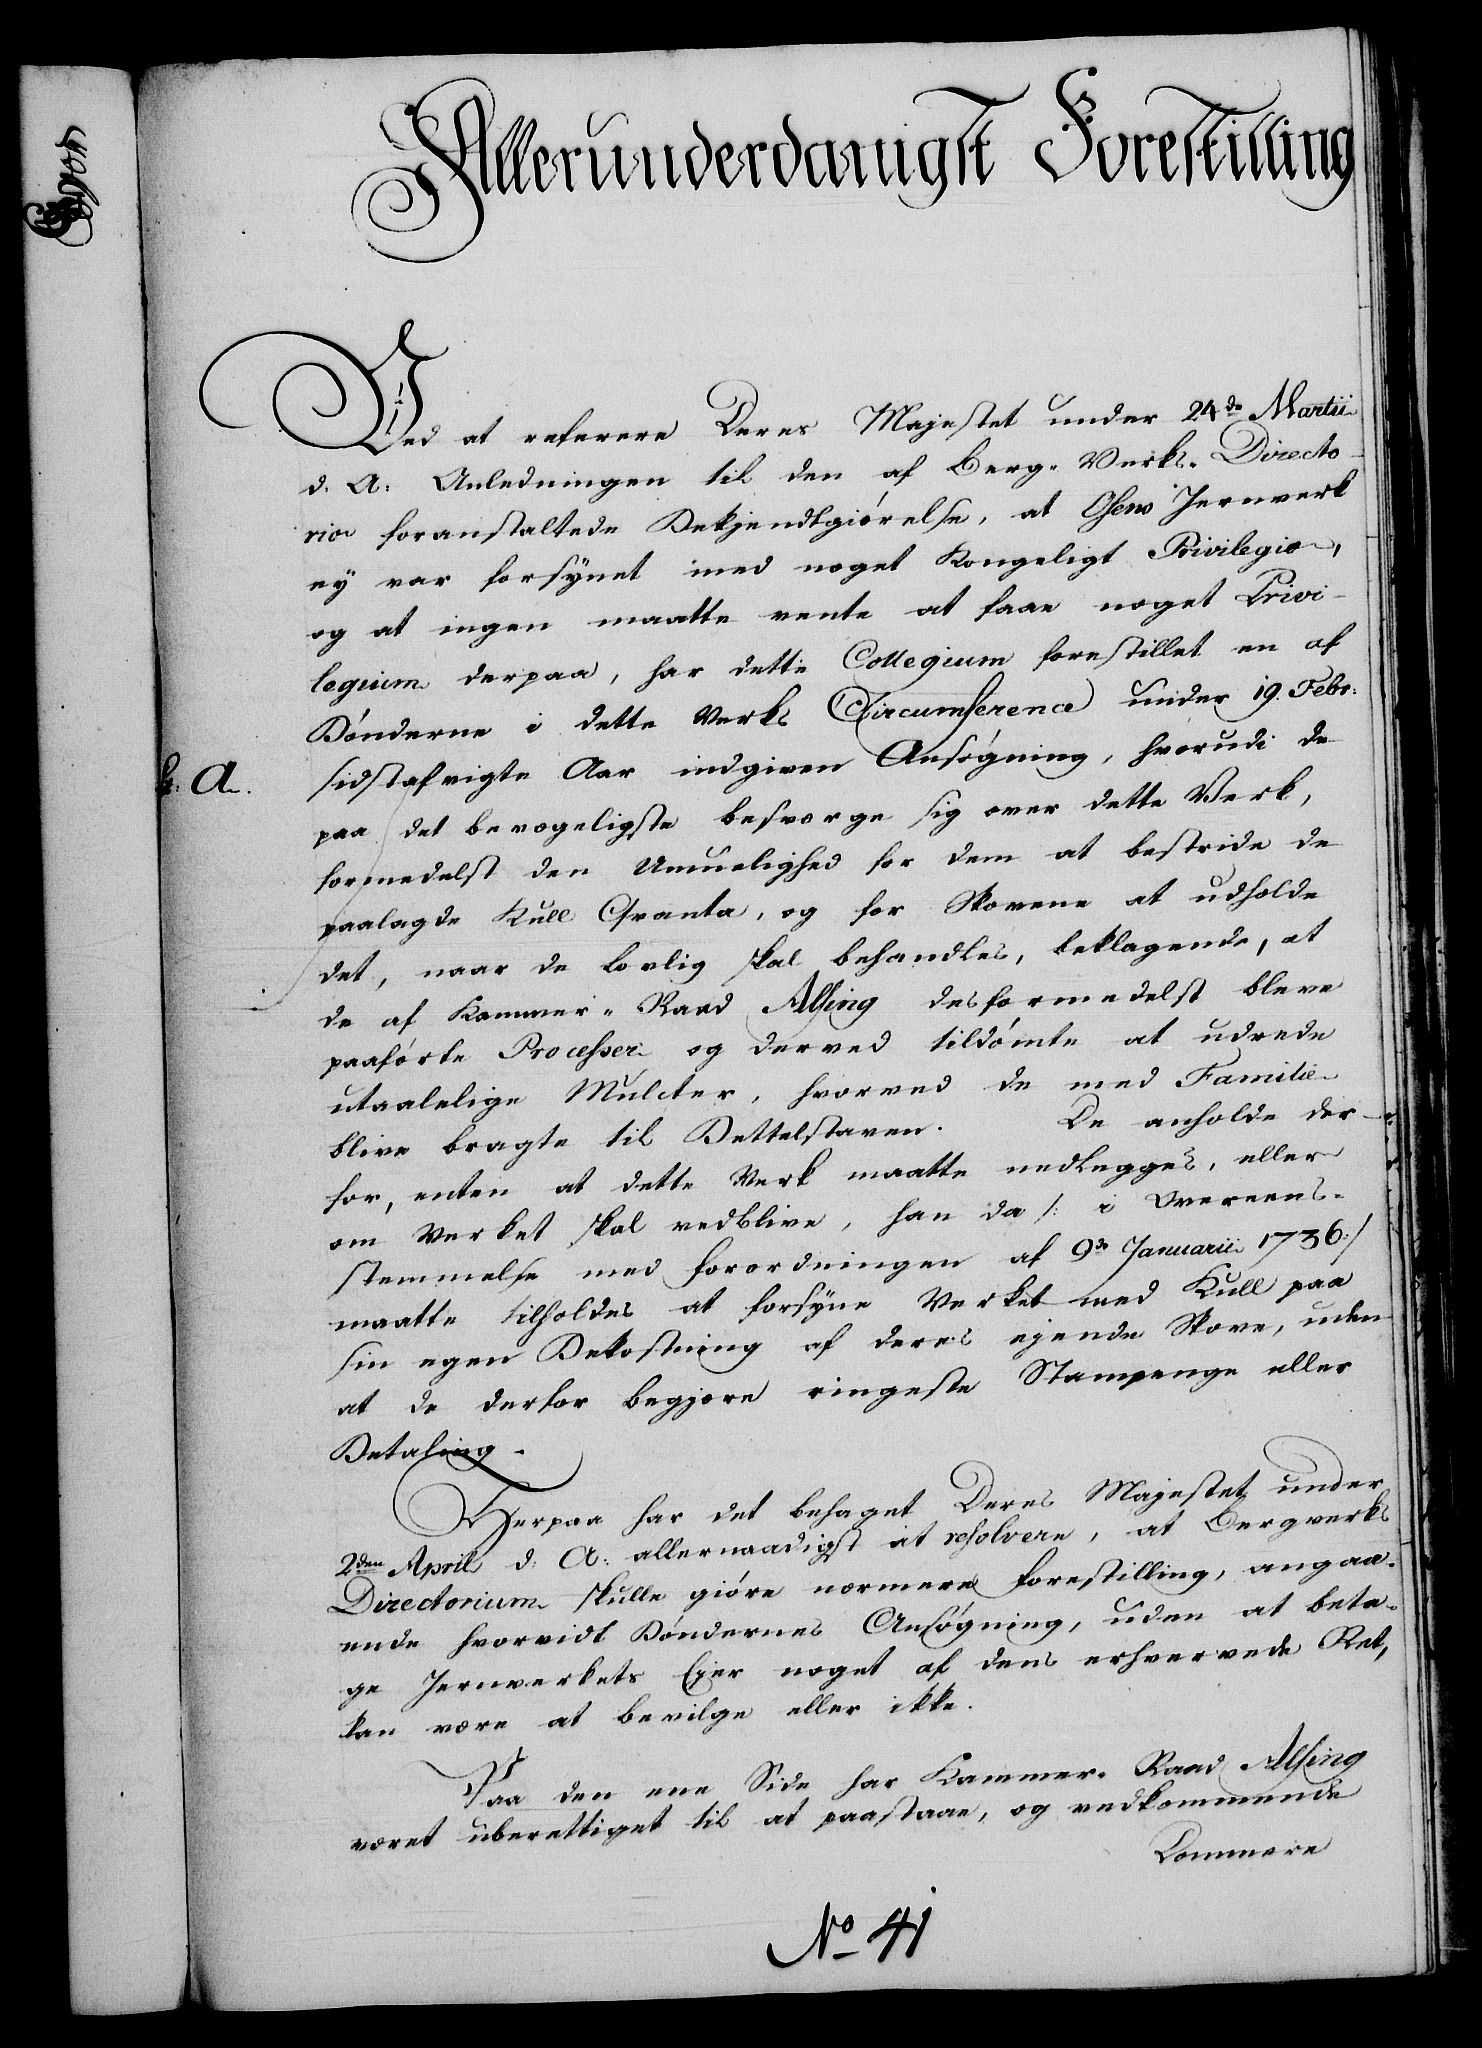 Allerunderdanigst Forestilling
Ved at referere Deres Majestet under 24de Martii
d. A: Anledningen til den af Berg-Verks-Directo-
rio foranstaltede Bekjendtgiörelse, at Osens Jernverk
ey var forsÿnet med noget Kongeligt Privilegio,
og at ingen maatte vente at faae noget Privi-
legium derpaa, har dette Collegium forestillet en af
Bönderne i dette Verks Circumference under 19. Febr:
sidstafvigte Aar indgiven Ansögning, hvorudi de
A.
paa det bevægeligste besværge sig over dette Verk,
formedelst den Umuelighed for dem at bestride de
paalagde Kull Qvanta, og for Skovene at udholde
det, naar de lovlig skal behandles, beklagende, at
de af Kammer-Raad Alsing desformedelst bleve
paaförte Processer og derved tildömte at udrede
utaalelige Mulcter, hvorved de med Familie
blive bragte til Bettelstaven. De anholde der-
for, enten at dette Verk maatte nedlegges, eller
om Verket skal vedblive, han da /: i Overeens-
stemmelse med Forordningen af 9de Januarii 1736:/
maatte tilholdes at forsÿne Verket med Kull paa
sin egen Bekostning af deres ejende Skove, uden
at de derfor begjære ringeste Stampenge eller
Betaling.
Herpaa har det behaget Deres Majestet under
2den April d: A: allernaadigst at resolvere, at Bergverks
Directorium skulle giöre nærmere Forestilling, angaa-
ende hvorvidt Böndernes Ansögning, uden at beta-
ge Jernverkets Ejer noget af dens erhvervede Ret,
kan være at bevilge eller ikke.
Paa den ene Side har Kammer-Raad Alsing
været uberettiget til at paastaae, og vedkommende
Dommere
No 41